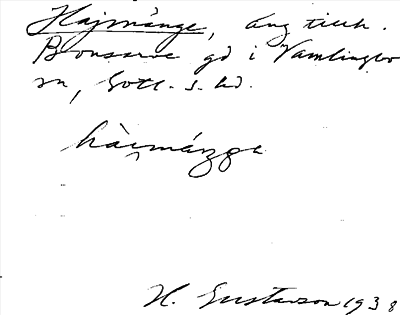 Hajmänge, äng tillh.
Bonsarve gd i Vamlingbo
sn, Gotl. s. hd.
H. Gustavson 1938